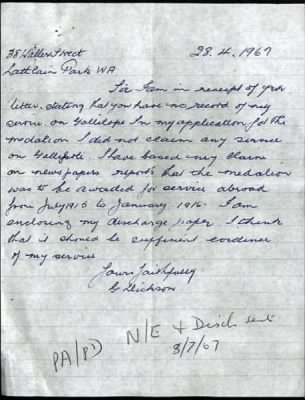 38 Waller Street
Lathlain Park WA
28.4.1967
Sir I am in receipt of your
letter. stating that you have no record of my
service on Gallilope In my application for the
medalion I did not claim any service
on Gallipole. I have based my claim
on newspapers reports that the medalion
was to be awarded for service abroad
from July 1915 to January 1916. I am
enclosing my discharge paper. I think
that it should be sufficient
of my service
Yours faithfully
G Dickson
PA/PD N/E & Disch sent
8/7/67